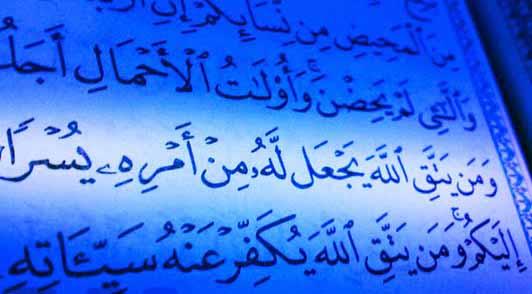 مِنَ ٱلۡمَحِيضِ مِن نِّسَآئِكُمۡ إِنِ
وَٱلَّٰٓـِٔي لَمۡ يَحِضۡنَۚ وَأُوْلَٰتُ ٱلۡأَحۡمَالِ أَجَلُ
وَمَن يَتَّقِ ٱللَّهَ يَجۡعَل لَّهُۥ مِنۡ أَمۡرِهِۦ يُسۡرٗا
إِلَيۡكُمۡۚ وَمَن يَتَّقِ ٱللَّهَ يُكَفِّرۡ عَنۡهُ سَيِّـَٔاتِهِۦ